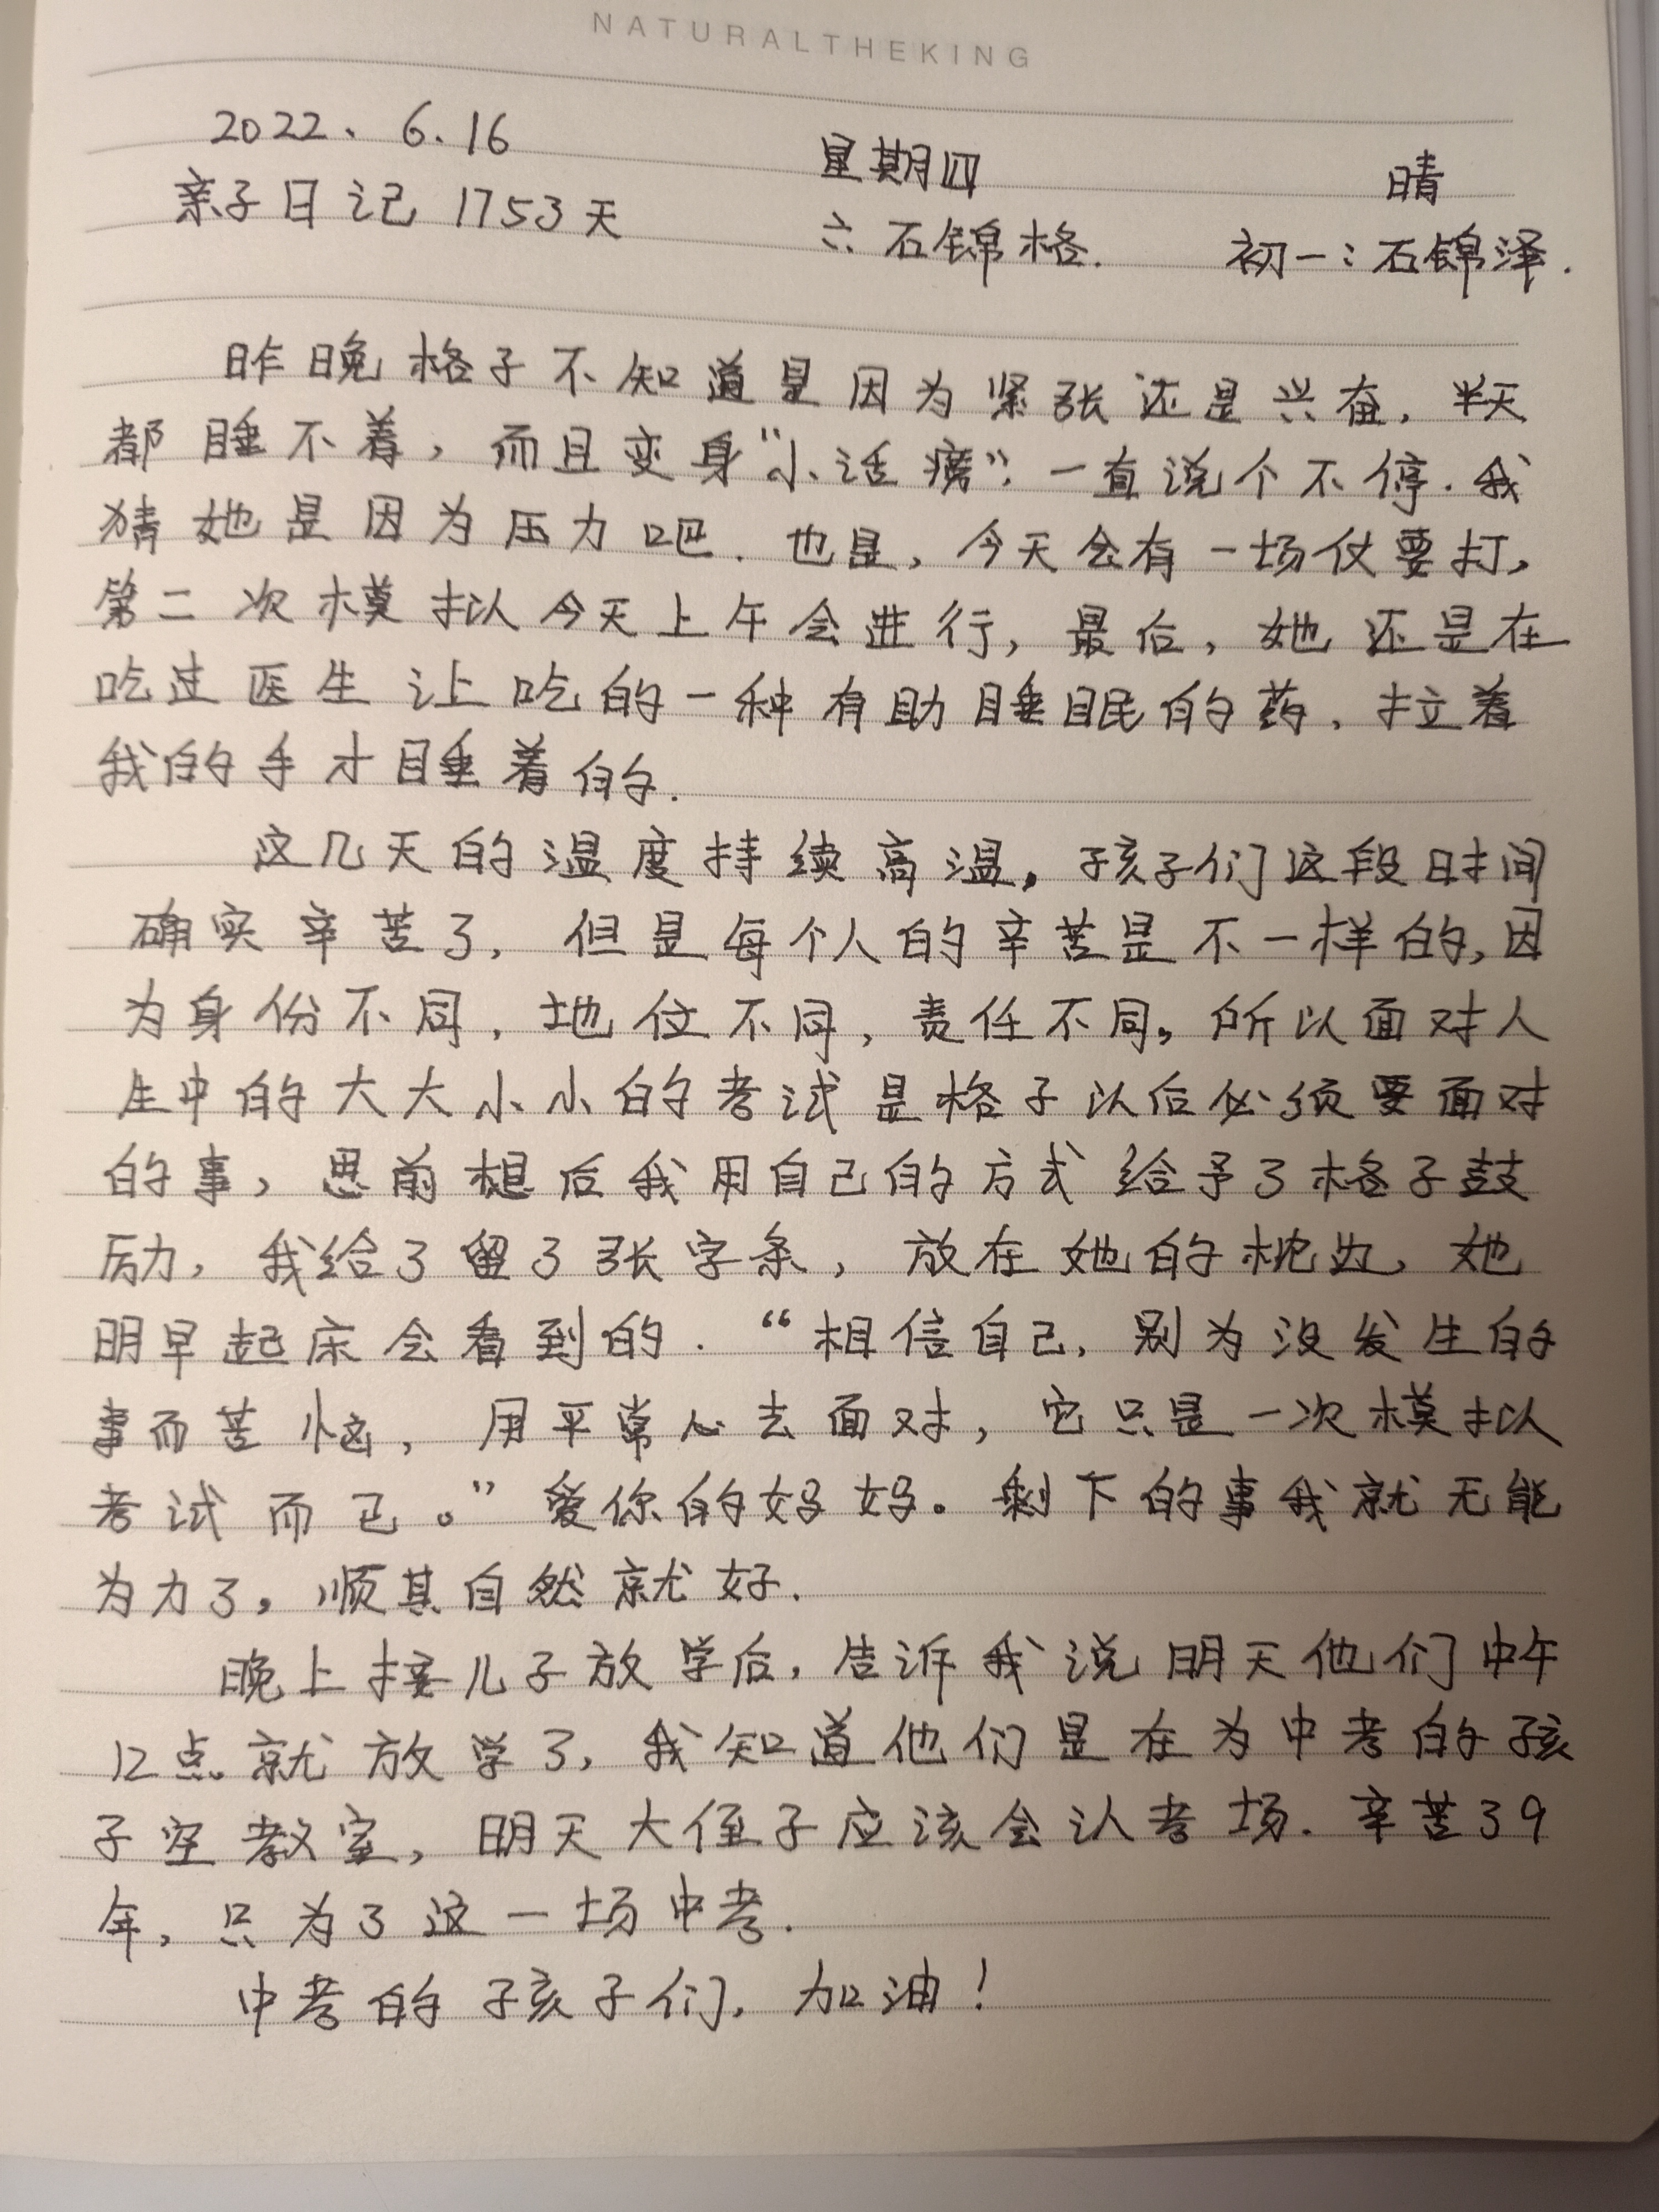 NATURALTHEKING
2022、6.16 星期四 晴
亲子日记 1753天 六:石锦格. 初一:石锦泽.
昨晚格子不知道是因为紧张还是兴奋,半天
都睡不着,而且变身“小话痨”,一直说个不停.我
猜她是因为压力吧.也是,今天会有一场仗要打,
第二次模拟今天上午会进行,最后,她还是在
吃过医生让吃的一种有助睡眠的药,拉着
我的手才睡着的.
这几天的温度持续高温,孩子们这段时间
确实辛苦了,但是每个人的辛苦是不一样的,因
为身份不同,地位不同,责任不同,所以面对人
生中的大大小小的考试是格子以后必须要面对
的事,思前想后我用自己的方式给予了格子鼓
励,我给了留了张字条,放在她的枕边,她
明早起床会看到的.“相信自己,别为没发生的
事而苦恼,用平常心去面对,它只是一次模拟
考试而已。”爱你的妈妈。剩下的事我就无能
为力了,顺其自然就好.
晚上接儿子放学后,告诉我说明天他们中午
12点就放学了,我知道他们是在为中考的孩
子空教室,明天大侄子应该会认考场.辛苦39
年,只为了这一场中考.
中考的孩子们,加油!